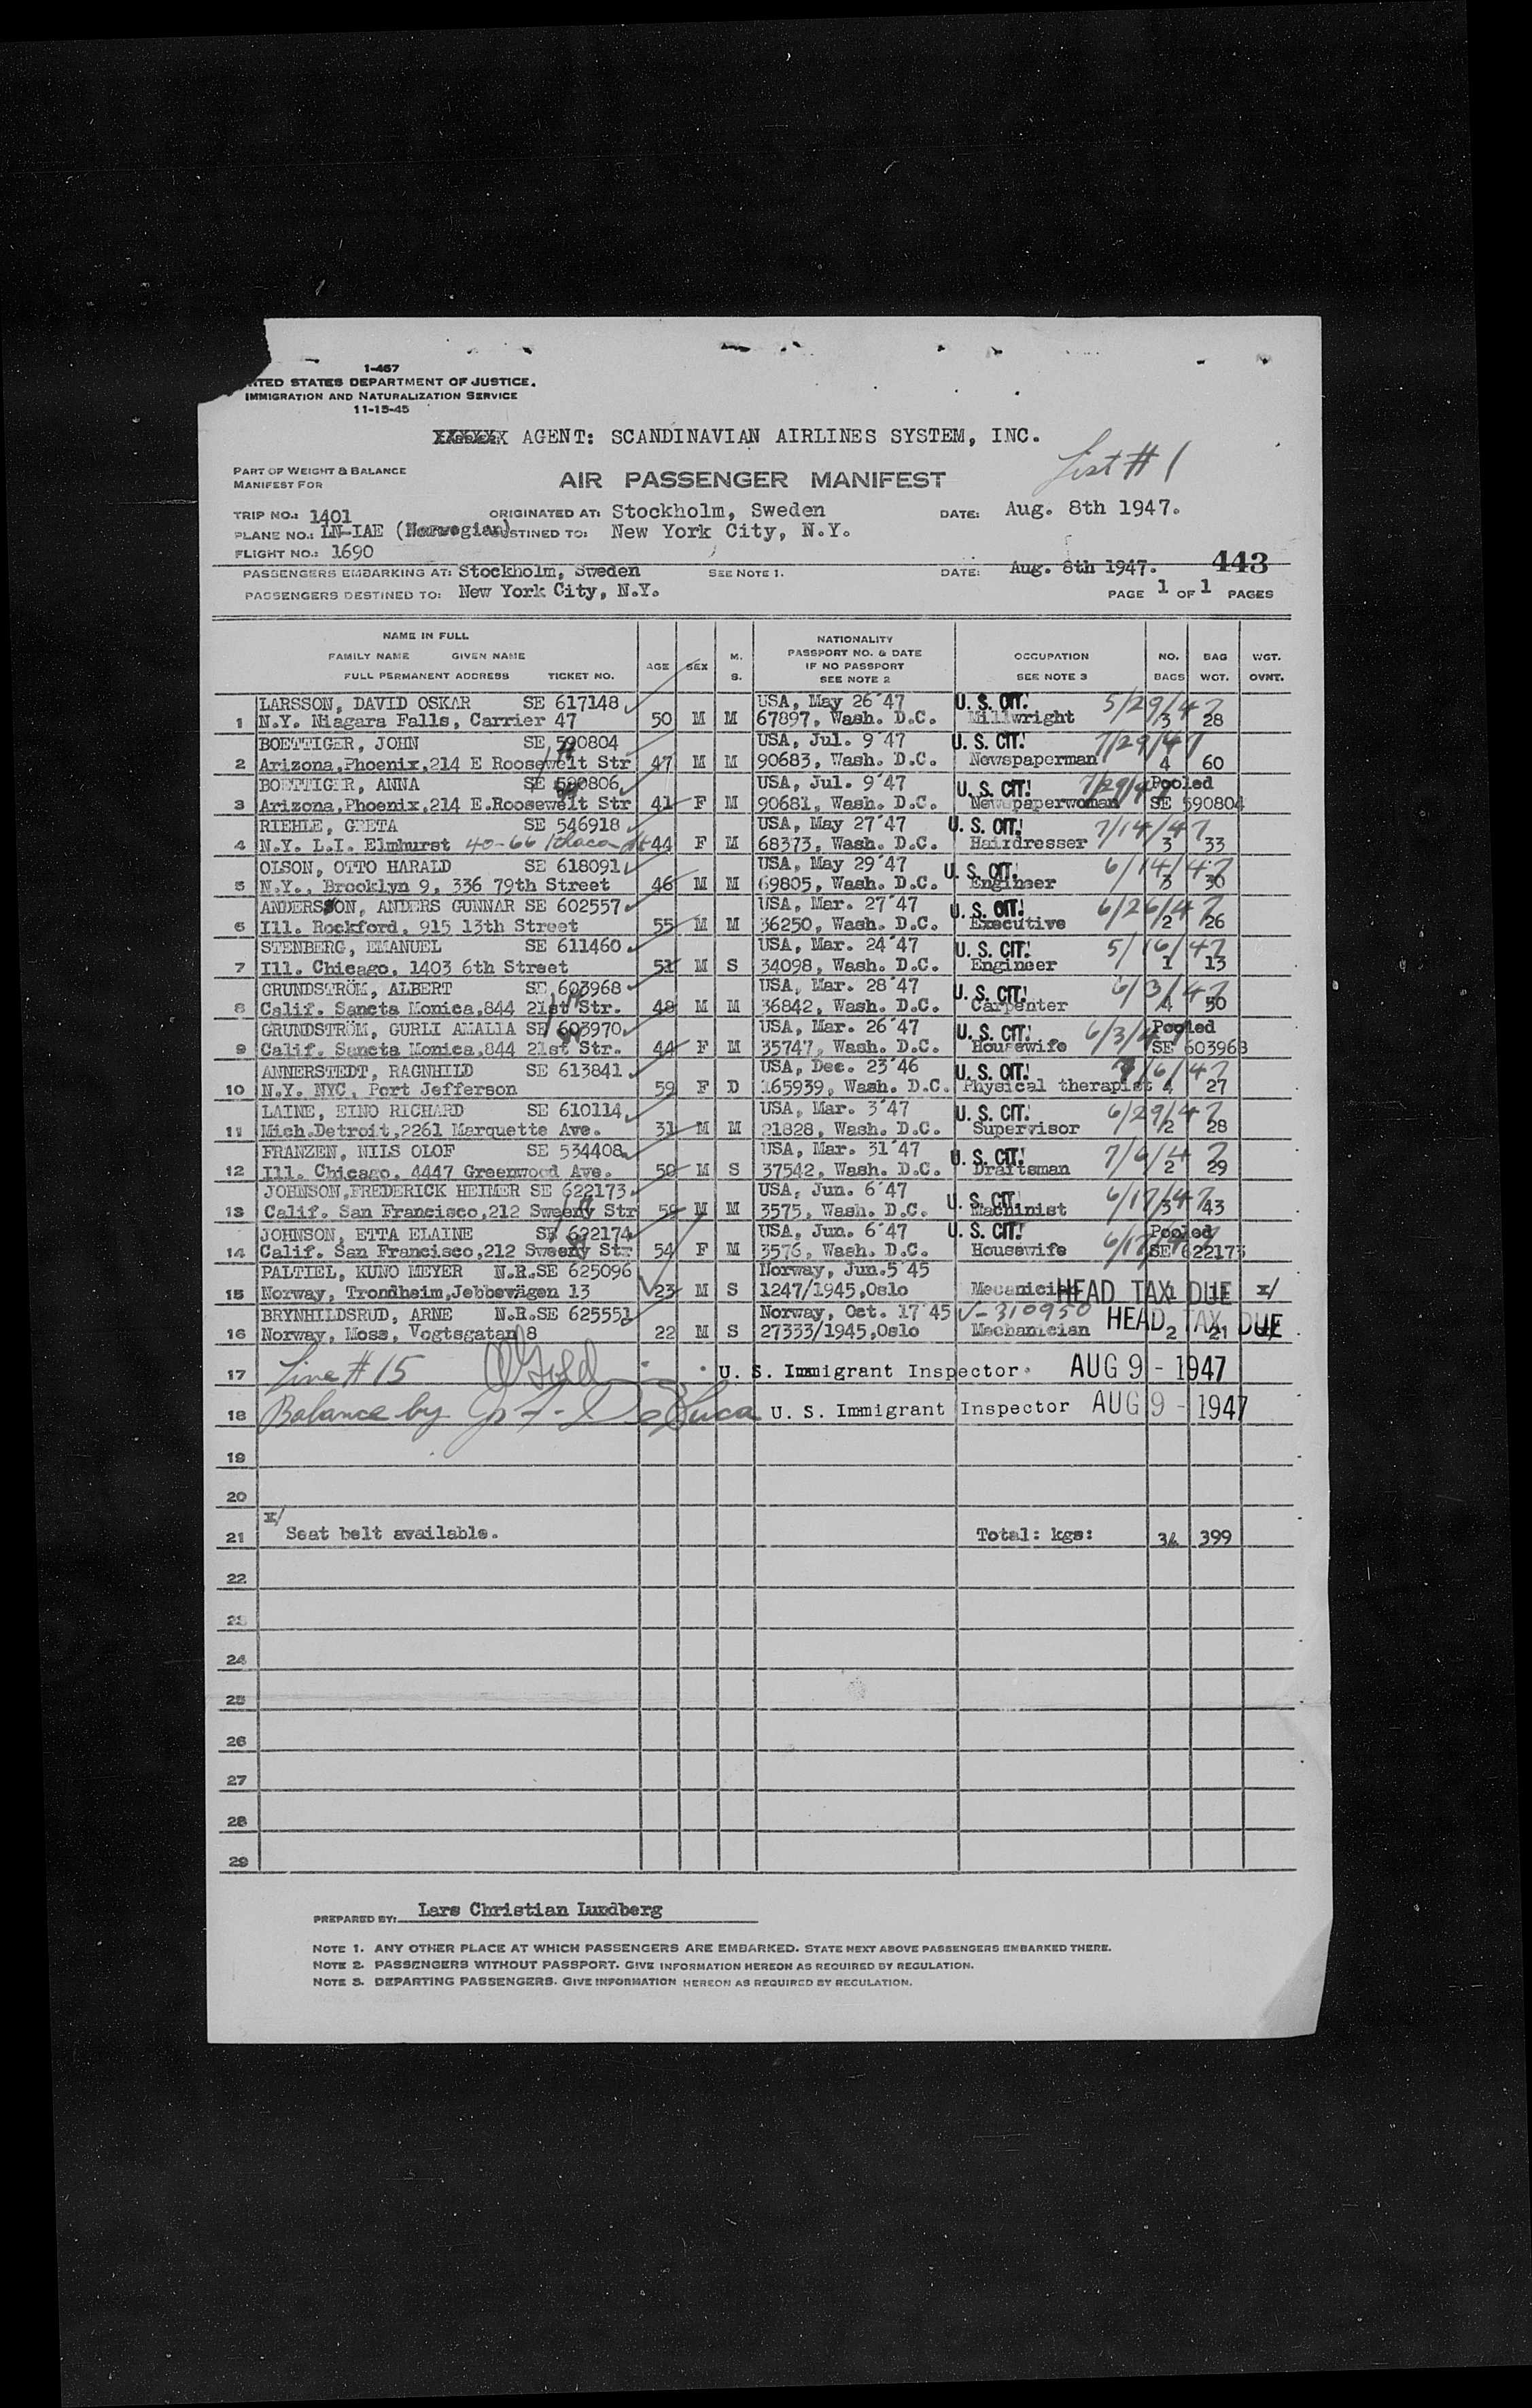 1-467
ITED STATES DEPARTMENT OF JUSTICE.
IMMIGRATION AND NATURALIZATION SERVICE
11-15-45
AGENT: SCANDINAVIAN AIRLINES SYSTEM, INC.
List # 1
PART OF WEIGHT & BALANCE
MANIFEST FOR
AIR PASSENGER MANIFEST
TRIP NO.: 1401 ORIGINATED AT: Stockholm, Sweden DATE: Aug. 8th 1947.
PLANE NO.: LN-IAE (Norwegian) STINED TO: New York City, N.Y.
FLIGHT NO.: 1690
443
PASSENGERS EMBARKING AT: Stockholm, Sweden SEE NOTE 1. DATE: Aug. 8th 1947.
PASSENGERS DESTINED TO: New York City, N.Y. PAGE 1 OF 1 PAGES
NAME IN FULL
FAMILY NAME GIVEN NAME
FULL PERMANENT ADDRESS TICKET NO. AGE SEX M. S. NATIONALITY PASSPORT NO. & DATE IF NO PASSPORT SEE NOTE 2 OCCUPATION SEE NOTE 3 NO. BAGS BAG WGT. WGT. OVNT.
LARSSON, DAVID OSKAR SE 617148 USA, May 26'47 U. S. CIT. 5/29/47
1 N.Y. Niagara Falls, Carrier 47 50 M M 67897, Wash. D.C. Millwright 3 28
BOETTIGER, JOHN SE 590804 USA, Jul. 9'47 U. S. CIT. 7/29/47
2 Arizona,Phoenix,214 E Roosewelt Str 47 M M 90683, Wash. D.C. Newspaperman 4 60
BOETTIGER, ANNA SE 590806 USA, Jul. 9'47 U. S. CIT. 7/29/47 Pooled
3 Arizona,Phoenix,214 E.Roosewelt Str 41 F M 90681, Wash. D.C. Newspaperwoman SE 590804
RIEHLE, GRETA SE 546918 USA, May 27'47 U. S. CIT. 7/14/47
4 N.Y. L.I. Elmhurst 40-66 Ithaca St 44 F M 68373, Wash. D.C. Hairdresser 3 33
OLSON, OTTO HARALD SE 618091 USA, May 29'47 U. S. CIT. 6/14/47
5 N.Y., Brooklyn 9, 336 79th Street 46 M M 69805, Wash. D.C. Engineer 3 30
ANDERSSON, ANDERS GUNNAR SE 602557 USA, Mar. 27'47 U. S. CIT. 6/26/47
6 Ill. Rockford, 915 13th Street 55 M M 36250, Wash. D.C. Executive 2 26
STENBERG, EMANUEL SE 611460 USA, Mar. 24'47 U. S. CIT. 5/16/47
7 Ill. Chicago, 1403 6th Street 51 M S 34098, Wash. D.C. Engineer 1 13
GRUNDSTRÖM, ALBERT SE 603968 USA, Mar. 28'47 U. S. CIT. 6/3/47
8 Calif. Sancta Monica,844 21st Str. 48 M M 36842, Wash. D.C. Carpenter 4 50
GRUNDSTRÖM, GURLI AMALIA SE 603970 USA, Mar. 26'47 U. S. CIT. 6/3/47 Pooled
9 Calif. Sancta Monica,844 21st Str. 44 F M 35747, Wash. D.C. Housewife SE 603968
ANNERSTEDT, RAGNHILD SE 613841 USA, Dec. 23'46 U. S. CIT. 7/6/47
10 N.Y. NYC, Port Jefferson 59 F D 165939, Wash. D.C. Physical therapist 4 27
LAINE, EINO RICHARD SE 610114 USA, Mar. 3'47 U. S. CIT. 6/29/47
11 Mich.Detroit,2261 Marquette Ave. 31 M M 21828, Wash. D.C. Supervisor 2 28
FRANZEN, NILS OLOF SE 534408 USA, Mar. 31'47 U. S. CIT. 7/6/47
12 Ill. Chicago, 4447 Greenwood Ave. 50 M S 37542, Wash. D.C. Draftsman 2 29
JOHNSON,FREDERICK HEIMER SE 622173 USA, Jun. 6'47 U. S. CIT. 6/17/47
13 Calif. San Francisco,212 Sweeny Str 59 M M 3575, Wash. D.C. Machinist 3 43
JOHNSON, ETTA ELAINE SE 622174 USA, Jun. 6'47 U. S. CIT. 6/17/47 Pooled
14 Calif. San Francisco,212 Sweeny Str 54 F M 3576, Wash. D.C. Housewife SE 622173
PALTIEL, KUNO MEYER N.R.SE 625096 Norway, Jun.5'45
15 Norway, Trondheim,Jebbevägen 13 23 M S 1247/1945,Oslo Mecanician HEAD TAX DUE 1 11 x/
BRYNHILDSRUD, ARNE N.R.SE 625551 Norway, Oct. 17'45 V-310950
16 Norway, Moss, Vogtsgatan 8 22 M S 27333/1945,Oslo Mechanician HEAD TAX DUE 2 21
17 Line # 15 U. S. Immigrant Inspector AUG 9 - 1947
18 Balance by U. S. Immigrant Inspector AUG 9 - 1947
19
20
x/
21 Seat belt available. Total: kgs: 34 399
22
23
24
25
26
27
28
29
PREPARED BY: Lars Christian Lundberg
NOTE 1. ANY OTHER PLACE AT WHICH PASSENGERS ARE EMBARKED. STATE NEXT ABOVE PASSENGERS EMBARKED THERE.
NOTE 2. PASSENGERS WITHOUT PASSPORT. GIVE INFORMATION HEREON AS REQUIRED BY REGULATION.
NOTE 3. DEPARTING PASSENGERS. GIVE INFORMATION HEREON AS REQUIRED BY REGULATION.